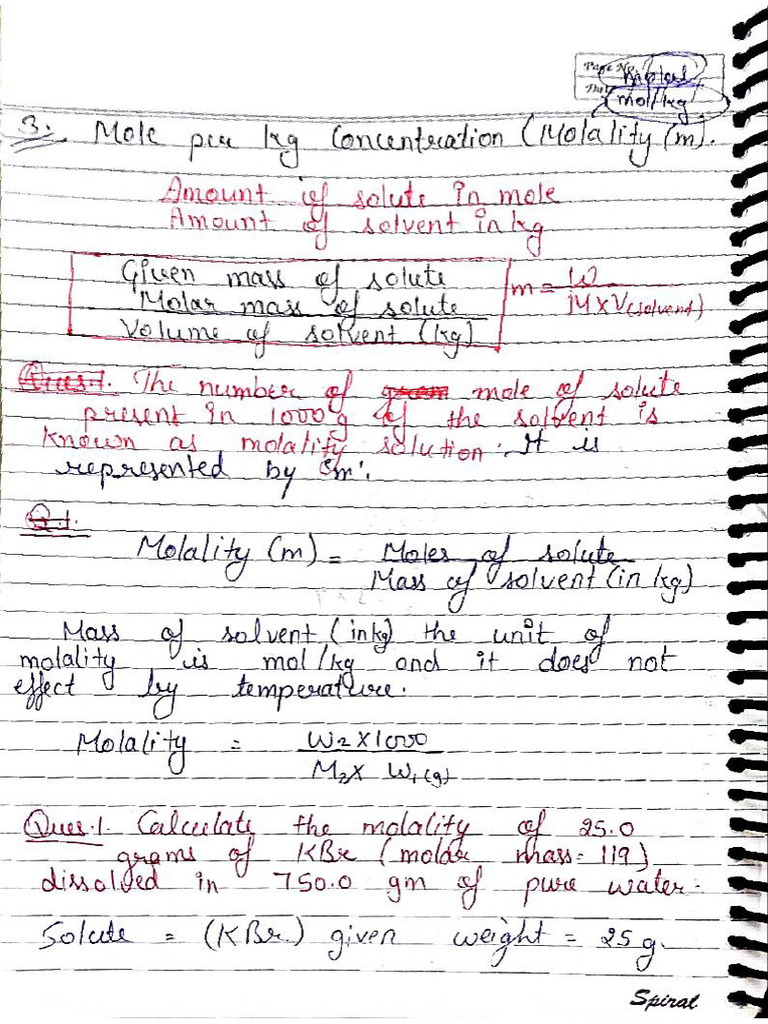 Page No.
mol/kg
3. Mole per kg Concentration (Molality (m).
Amount of solute in mole
Amount of solvent in kg
Given mass of solute
Molar mass of solute
Volume of solvent (kg)
m = W / M x V(solvent)
Ques.1. The number of gram mole of solute
present in 1000 g of the solvent is
known as molality solution. It is
represented by 'm'.
Q.1.
Molality (m) = Moles of solute
Mass of solvent (in kg)
Mass of solvent (in kg) the unit of
molality is mol/kg and it does not
effect by temperature.
Molality = W2 x 1000
M2 x W1(g)
Ques.1. Calculate the molality of 25.0
grams of KBr (molar mass = 119)
dissolved in 750.0 gm of pure water.
Solute = (KBr) given weight = 25 g.
Spiral